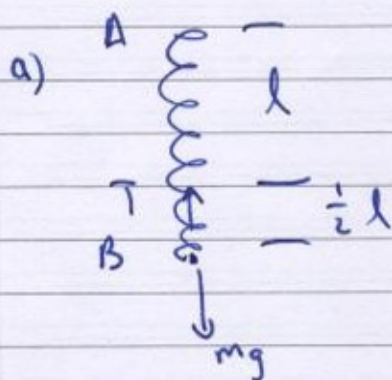 A
a)
l
T
1/2 l
B
mg